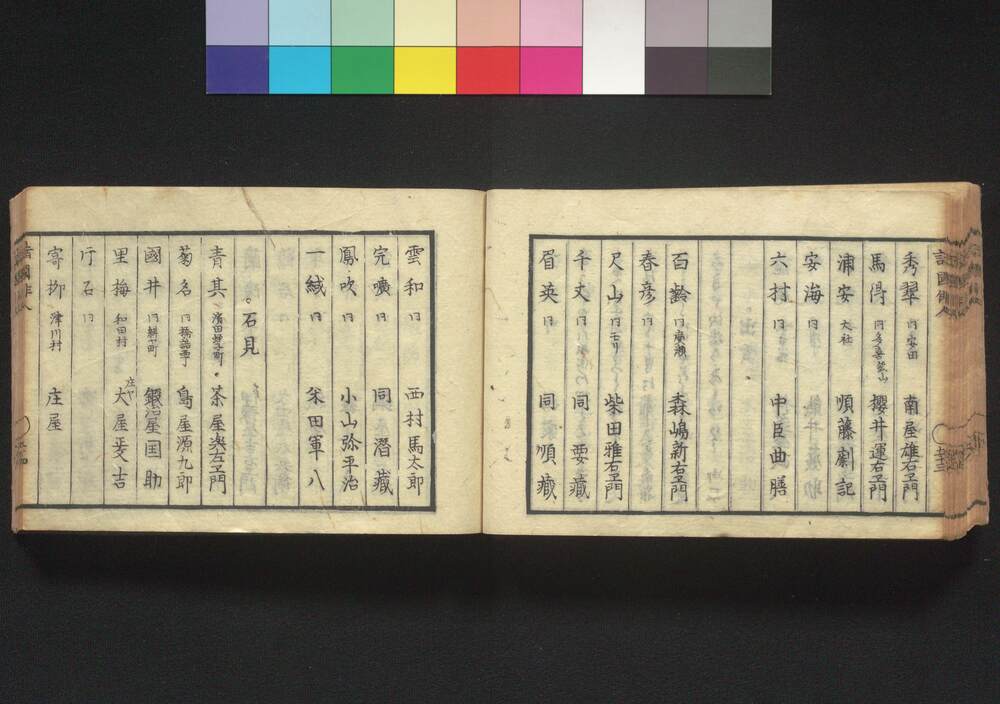 秀翠 同安田 南屋雄右エ門
馬得 同多喜登山 櫻井運右エ門
浦安 大社 順藤劇記
安海 同
六村 同 中臣典膳
百齢 同廣瀬 森嶋新右エ門
春彦 同
尺山 同モリ 柴田雅右エ門
千丈 同 同要藏
眉英 同 同順藏
雲和 同 西村馬太郎
完嘖 同 同潜藏
鳳吹 同 小山弥平治
一絨 同 米田軍八
石見
青其 濱田蛭子町 茶屋與左エ門
菊名 同 島屋源九郎
國井 同耕町 銀屋国助
里梅 和田村 庄ヤ 大屋斐吉
行石 同
寄柳 津川村 庄屋